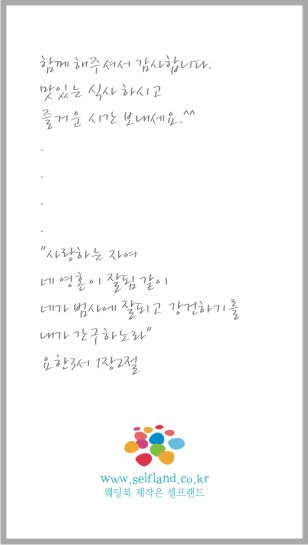 함께 해주셔서 감사합니다.
맛있는 식사 하시고
즐거운 시간 보내세요.^^
.
.
.
.
"사랑하는 자여
네 영혼이 잘됨 같이
네가 범사에 잘되고 강건하기를
내가 간구하노라"
요한3서 1장2절
www.selfland.co.kr
웨딩북 제작은 셀프랜드